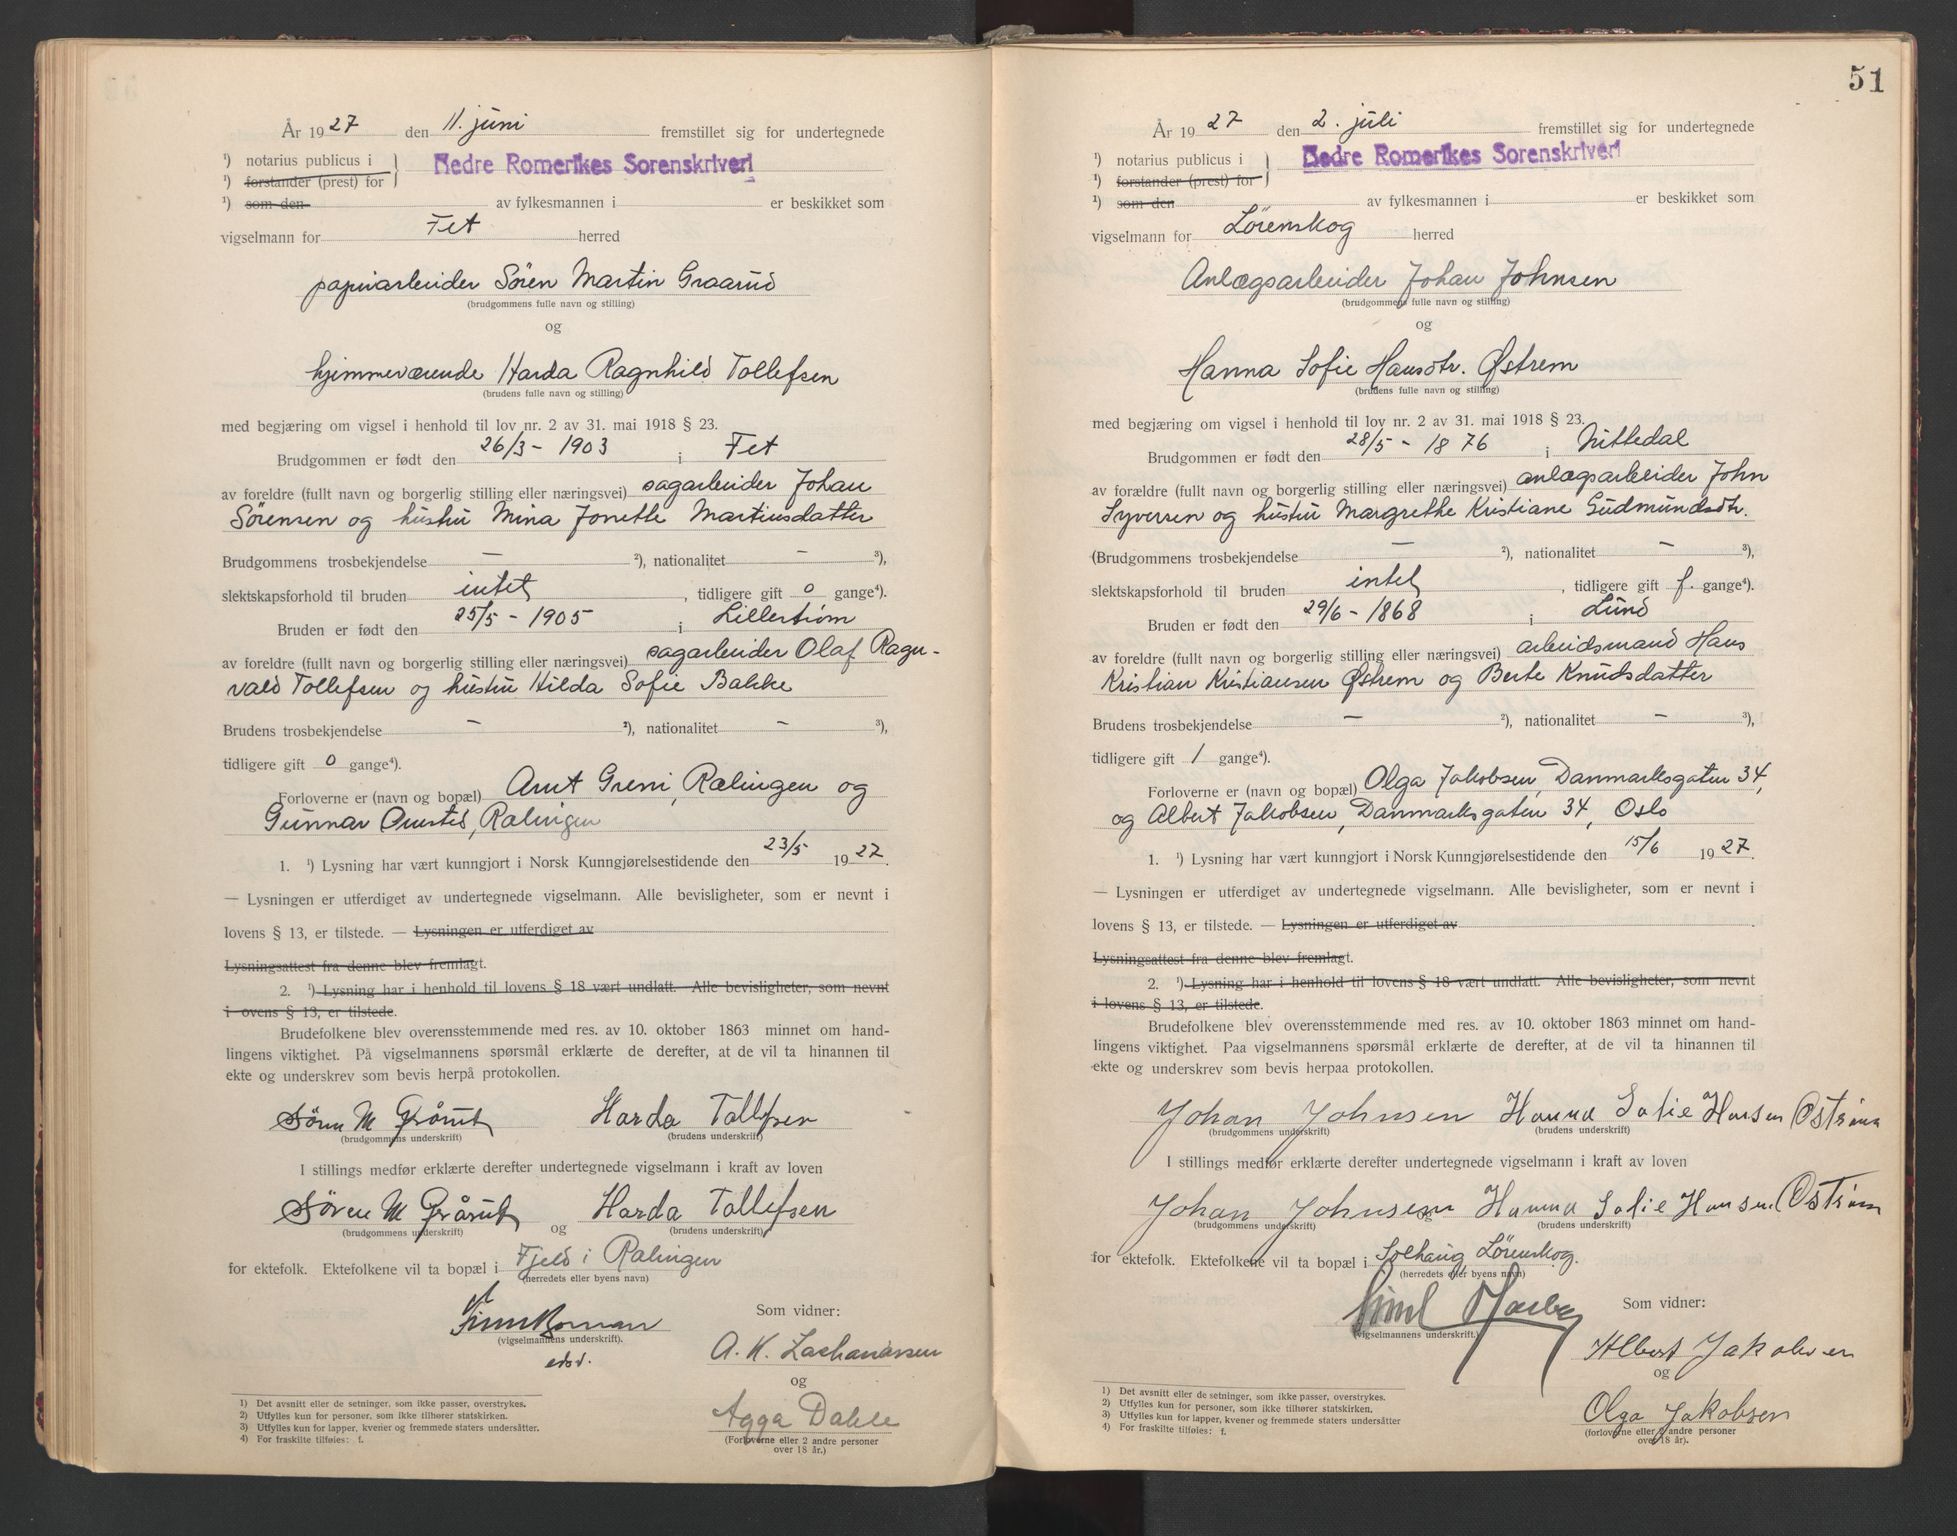 År 1927 den 11. juni fremstillet sig for undertegnede
¹) notarius publicus i } Nedre Romerikes Sorenskriveri
¹) forstander (prest) for
¹) som den av fylkesmannen i er beskikket som
vigselmann for Fet herred
papirarbeider Sören Martin Graarud
(brudgommens fulle navn og stilling)
og
hjemmeværende Harda Ragnhild Tollefsen
(brudens fulle navn og stilling)
med begjæring om vigsel i henhold til lov nr. 2 av 31. mai 1918 § 23.
Brudgommen er født den 26/3 - 1903 i Fet
av foreldre (fullt navn og borgerlig stilling eller næringsvei) sagarbeider Johan
Sørensen og hustru Mina Jonette Martinsdatter
Brudgommens trosbekjendelse — ²), nationalitet — ³),
slektskapsforhold til bruden intet, tidligere gift 0 gange⁴).
Bruden er født den 25/5 - 1905 i Lillestrøm
av foreldre (fullt navn og borgerlig stilling eller næringsvei) sagarbeider Olaf Ragn-
vald Tollefsen og hustru Hilda Sofie Bakke
Brudens trosbekjendelse — ²), nationalitet — ³),
tidligere gift 0 gange⁴).
Forloverne er (navn og bopæl) Arnt Greni, Rælingen og
Gunnar Amsted, Rælingen
1. ¹) Lysning har vært kunngjort i Norsk Kunngjørelsestidende den 23/5 1927.
— Lysningen er utferdiget av undertegnede vigselmann. Alle bevisligheter, som er nevnt i
lovens § 13, er tilstede. — Lysningen er utferdiget av
Lysningsattest fra denne blev fremlagt.
2. ¹) Lysning har i henhold til lovens § 18 vært undlatt. Alle bevisligheter, som nevnt
i ovens § 13, er tilstede.
Brudefolkene blev overensstemmende med res. av 10. oktober 1863 minnet om hand-
lingens viktighet. På vigselmannens spørsmål erklærte de derefter, at de vil ta hinannen til
ekte og underskrev som bevis herpå protokollen.
Sören M Grårud Harda Tollefsen
(brudgommens underskrift) (brudens underskrift)
I stillings medfør erklærte derefter undertegnede vigselmann i kraft av loven
Sören M Grårud og Harda Tollefsen
(brudgommens underskrift) (brudens underskrift)
for ektefolk. Ektefolkene vil ta bopæl i Fjeld i Rælingen
(herredets eller byens navn)
Som vidner:
(vigselmannens underskrift).
edsv.
A. K. Zachariassen
og
Agga Dahle
(Forloverne eller 2 andre personer
over 18 år.)
1) Det avsnitt eller de setninger, som ikke passer, overstrykes.
2) Utfylles kun for personer, som ikke tilhører statskirken.
3) Utfylles kun for lapper, kvener og fremmede staters undersåtter.
4) For fraskilte tilføies: f.
51
År 1927 den 2. juli fremstillet sig for undertegnede
¹) notarius publicus i } Nedre Romerikes Sorenskriveri
¹) forstander (prest) for
¹) som den av fylkesmannen i er beskikket som
vigselmann for Lørenskog herred
Anlægsarbeider Johan Johnsen
(brudgommens fulle navn og stilling)
og
Hanna Sofie Hansdtr. Østrem
(brudens fulle navn og stilling)
med begjæring om vigsel i henhold til lov nr. 2 av 31. mai 1918 § 23.
Brudgommen er født den 28/5 - 1876 i Nittedal
av forældre (fullt navn og borgerlig stilling eller næringsvei) anlægsarbeider John
Syversen og hustru Margrethe Kristiane Gudmundsdtr.
(Brudgommens trosbekjendelse — ²), nationalitet — ³),
slektskapsforhold til bruden intet, tidligere gift f. gange⁴).
Bruden er født den 29/6 - 1868 i Lund
av foreldre (fullt navn og borgerlig stilling eller næringsvei) arbeidsmand Hans
Kristian Kristiansen Østrem og Berte Knudsdatter
Brudens trosbekjendelse — ²), nationalitet — ³),
tidligere gift 1 gange⁴).
Forloverne er (navn og bopæl) Olga Jakobsen, Danmarksgaten 34,
og Albert Jakobsen, Danmarksgaten 34, Oslo
1. ¹) Lysning har vært kunngjort i Norsk Kunngjørelsestidende den 15/6 1927.
— Lysningen er utferdiget av undertegnede vigselmann. Alle bevisligheter, som er nevnt i
lovens § 13, er tilstede. — Lysningen er utferdiget av
Lysningsattest fra denne blev fremlagt.
2. ¹) Lysning har i henhold til lovens § 18 vært undlatt. Alle bevisligheter, som nevnt
i lovens § 13, er tilstede.
Brudefolkene blev overensstemmende med res. av 10. oktober 1863 minnet om hand-
lingens viktighet. Paa vigselmannens spørsmål erklærte de derefter, at de vil ta hinannen til
ekte og underskrev som bevis herpaa protokollen.
Johan Johnsen Hanna Sofie Hansen Østrem
(brudgommens underskrift) (brudens underskrift)
I stillings medfør erklærte derefter undertegnede vigselmann i kraft av loven
Johan Johnsen og Hanna Sofie Hansen Østrem
(brudgommens underskrift) (brudens underskrift)
for ektefolk. Ektefolkene vil ta bopæl i Solhaug Lørenskog.
(herredets eller byens navn)
Som vidner:
(vigselmannens underskrift.)
Albert Jakobsen
og
Olga Jakobsen
(forloverne eller 2 andre personer
over 18 år).
1) Det avsnitt eller de setninger, som ikke passer, overstrykes.
2) Utfylles kun for personer, som ikke tilhører statskirken.
3) Utfylles kun for lapper, kvener og fremmede staters undersåtter
4) For fraskilte tilføies: f.